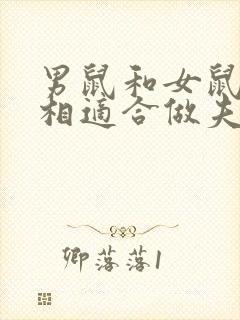 男鼠和女鼠
相适合做夫
卿落落1